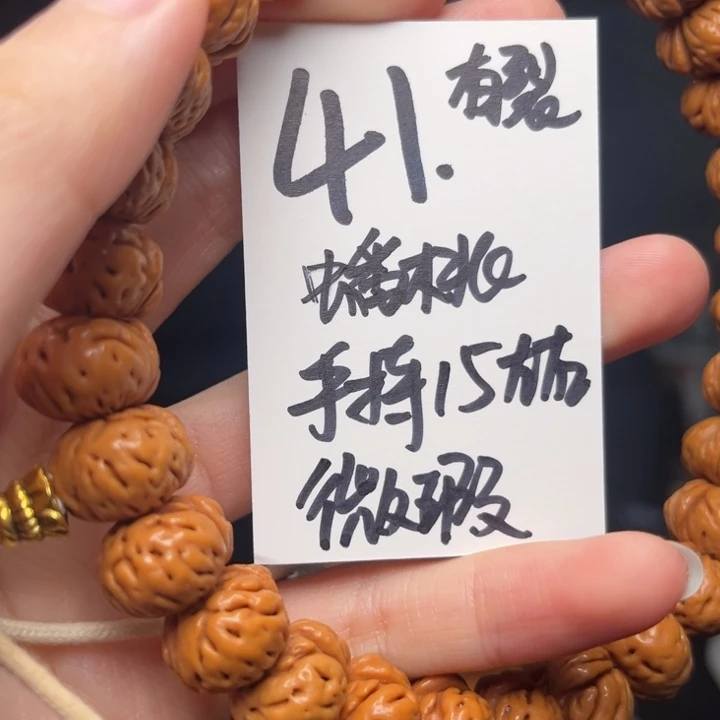 41. 有裂
蟠桃
手持15mm
微瑕